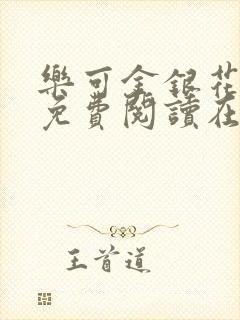 樂可金銀花
免費閱讀在
王首道